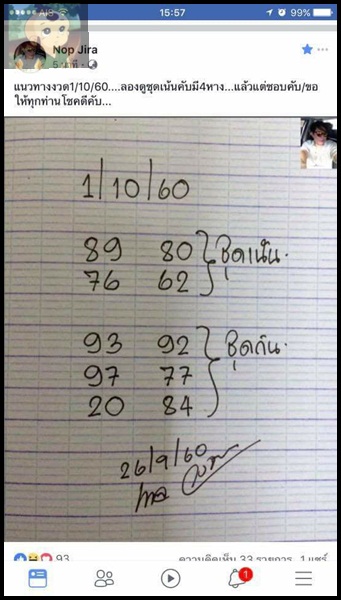 AIS
15:57
99%
Nop Jira
5 นาที
แนวทางงวด1/10/60....ลองดูชุดเน้นคับมี4หาง...แล้วแต่ชอบคับ/ขอ
ให้ทุกท่านโชคดีคับ...
1/10/60
89 80 ชุดเน้น.
76 62
93 92 ชุดกัน.
97 77
20 84
26/9/60
93 ความคิดเห็น 33 รายการ 1 แชร์
1